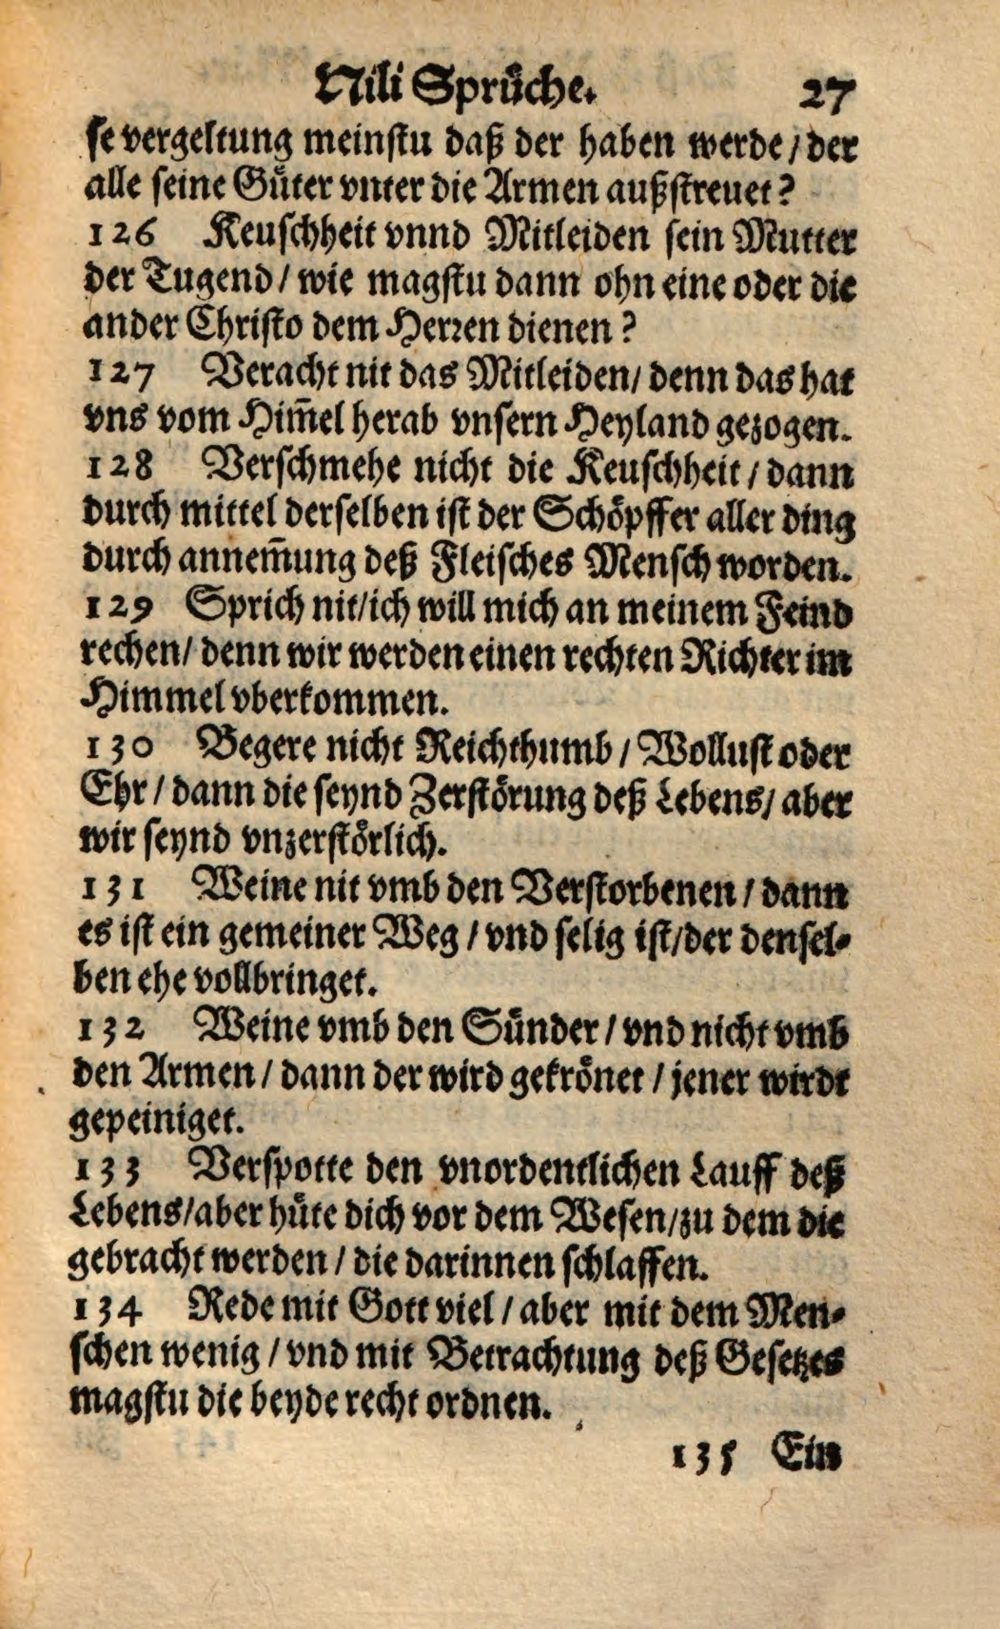 Nili Sprůche. 27
se vergeltung meinstu daß der haben werde / der
alle seine Gůter vnter die Armen außstrewet?
126 Keuschheit vnnd Mitleiden sein Mutter
der Tugend / wie magstu dann ohn eine oder die
ander Christo dem Herren dienen?
127 Veracht nit das Mitleiden / denn das hat
vns vom Him̃el herab vnsern Heyland gezogen.
128 Verschmehe nicht die Keuschheit / dann
durch mittel derselben ist der Schöpffer aller ding
durch annem̃ung deß Fleisches Mensch worden.
129 Sprich nit / ich will mich an meinem Feind
rechen / denn wir werden einen rechten Richter im
Himmel vberkommen.
130 Begere nicht Reichthumb / Wollust oder
Ehr / dann die seynd Zerstörung deß Lebens / aber
wir seynd vnzerstörlich.
131 Weine nit vmb den Verstorbenen / dann
es ist ein gemeiner Weg / vnd selig ist / der densel-
ben ehe vollbringet.
132 Weine vmb den Sůnder / vnd nicht vmb
den Armen / dann der wird gekrönet / jener wirdt
gepeiniget.
133 Verspotte den vnordentlichen Lauff deß
Lebens / aber hůte dich vor dem Wesen / zu dem die
gebracht werden / die darinnen schlaffen.
134 Rede mit Gott viel / aber mit dem Men-
schen wenig / vnd mit Betrachtung deß Gesetzes
magstu die beyde recht ordnen.
135 Ein